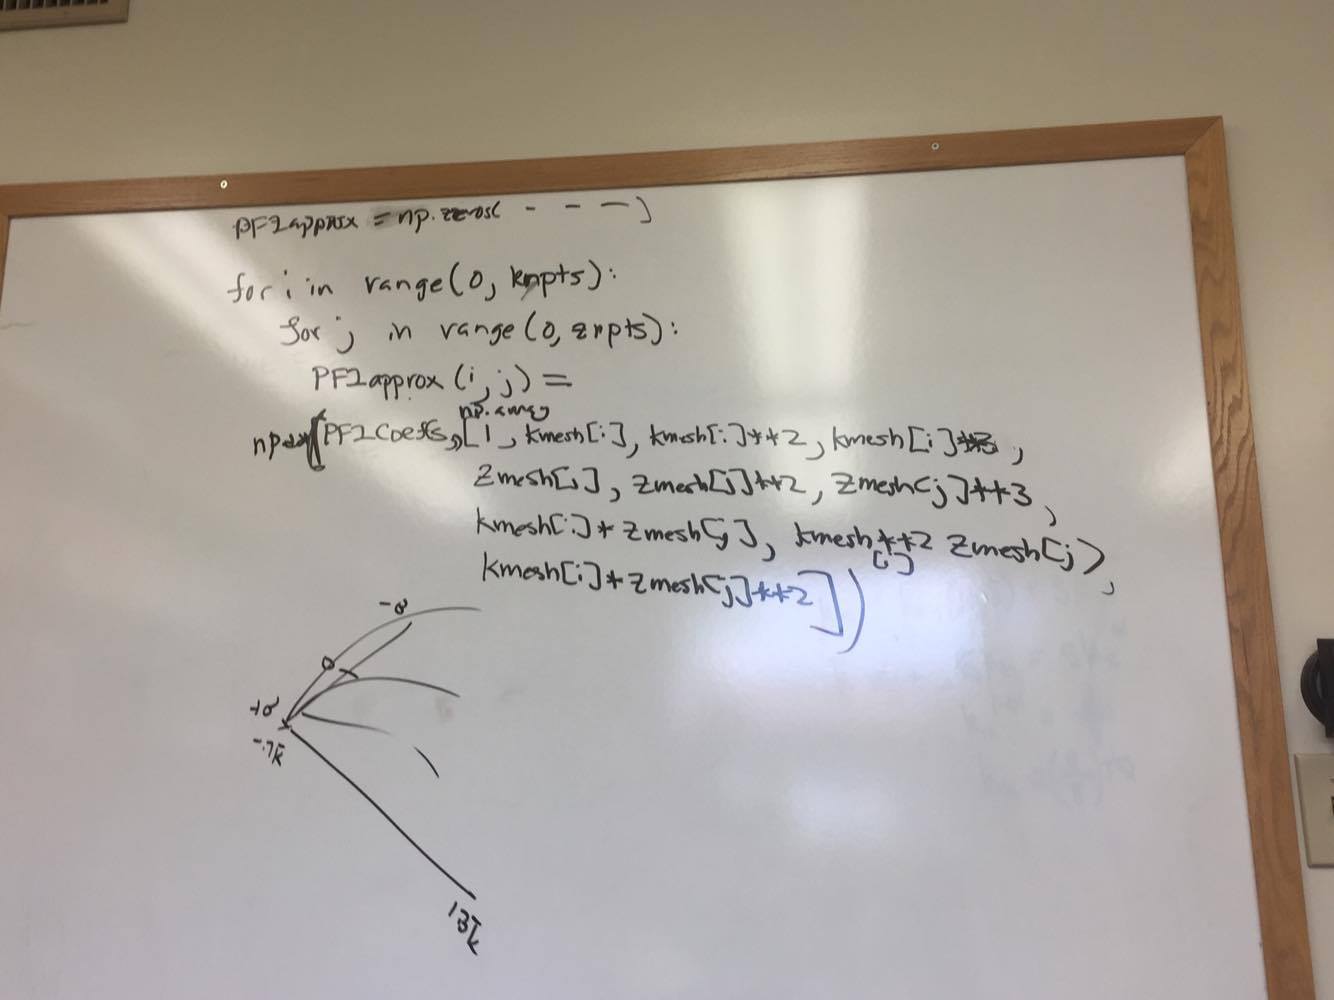 PF2approx = np.zeros( - - - )
for i in range(0, knpts):
for j in range(0, znpts):
PF2approx (i, j) =
np.array
np.dot(PF2Coeffs, [1, kmesh[i], kmesh[i]**2, kmesh[i]**3,
zmesh[j], zmesh[j]**2, zmesh[j]**3,
kmesh[i]*zmesh[j], kmesh**2 zmesh[j],
[i]
kmesh[i]*zmesh[j]**2])